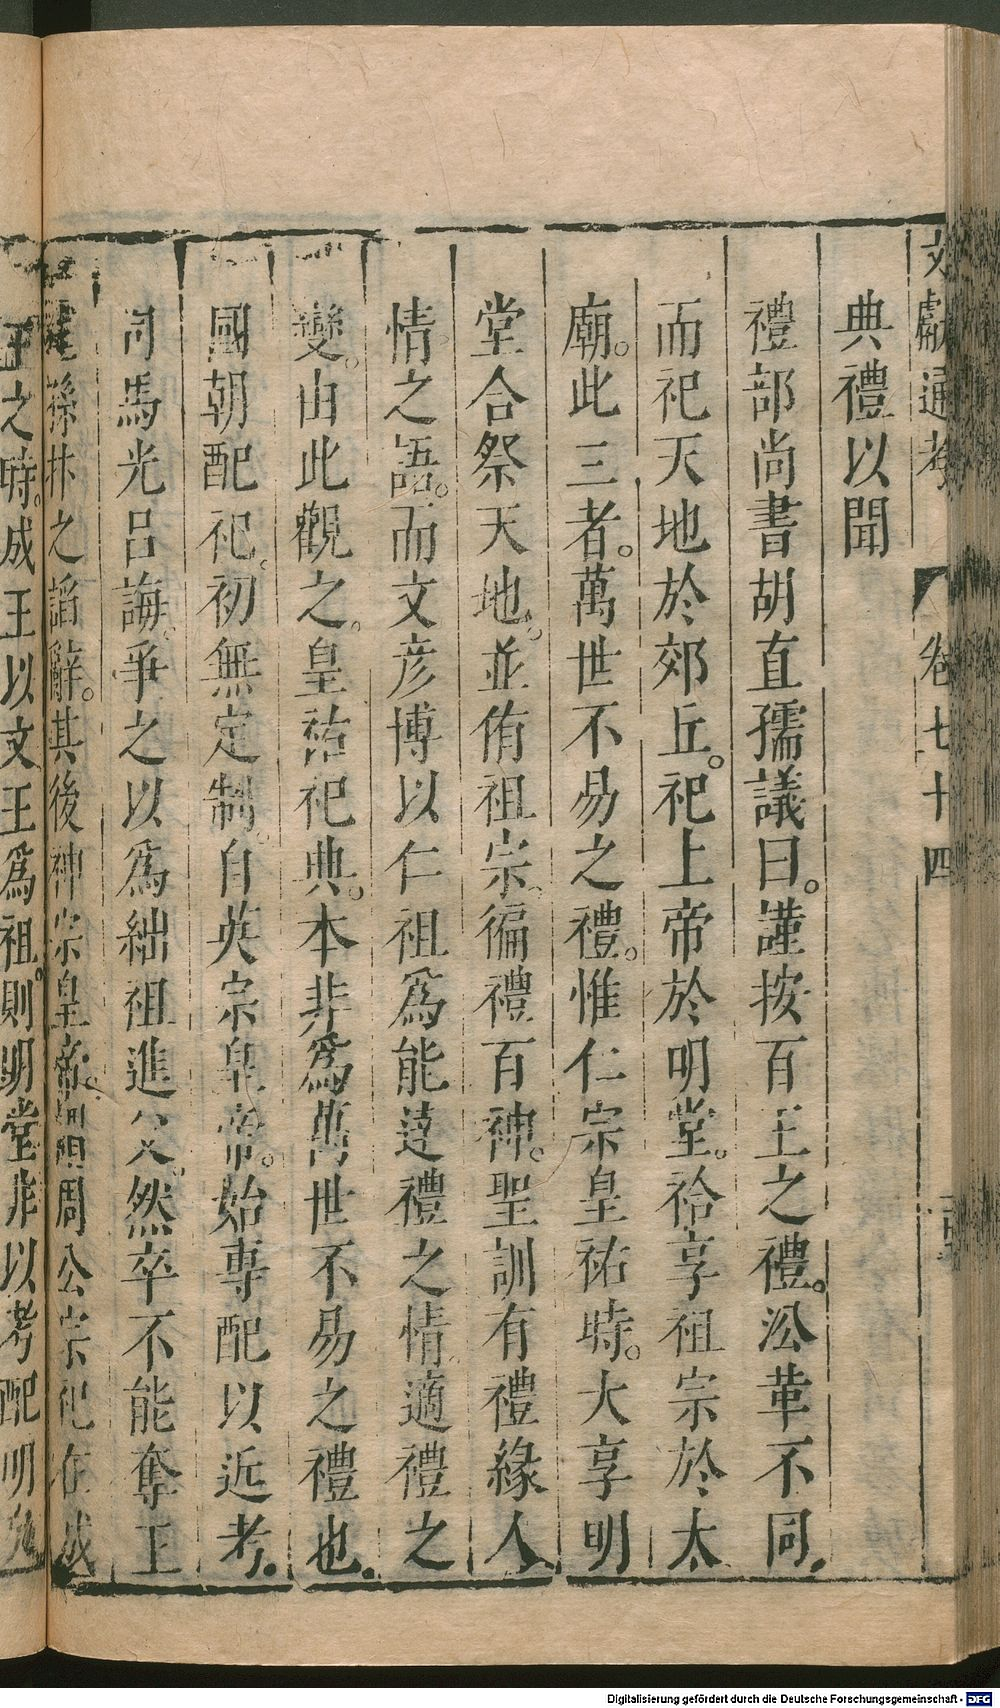 文獻通考 卷七十四
典禮以聞
禮部尚書胡直孺議曰。謹按百王之禮。沿革不同。
而祀天地於郊丘。祀上帝於明堂。祫享祖宗於太
廟。此三者。萬世不易之禮。惟仁宗皇祐時。大享明
堂合祭天地。並侑祖宗。徧禮百神。聖訓有禮緣人
情之語。而文彦博以仁祖爲能達禮之情適禮之
變。由此觀之。皇祐祀典。本非爲萬世不易之禮也。
國朝配祀。初無定制。自英宗皇帝。始專配以近考。
司馬光呂誨。爭之以爲絀祖進父。然卒不能奪王
孫抃之諂辭。其後神宗皇帝。謂周公宗祀在成
王之時。成王以文王爲祖。則明堂非以考配明
Digitalisierung gefördert durch die Deutsche Forschungsgemeinschaft - DFG